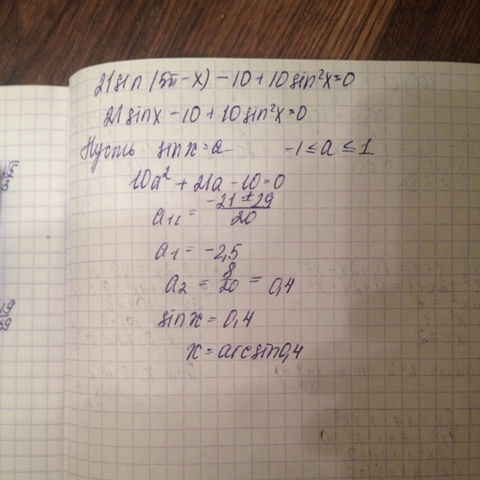 21 sin (5π - x) - 10 + 10 sin²x = 0
21 sin x - 10 + 10 sin²x = 0
Пусть sin x = a -1 ≤ a ≤ 1
10a² + 21a - 10 = 0
a₁,₂ = (-21 ± 29)/20
a₁ = -2,5
a₂ = 8/20 = 0,4
sin x = 0,4
x = arcsin 0,4